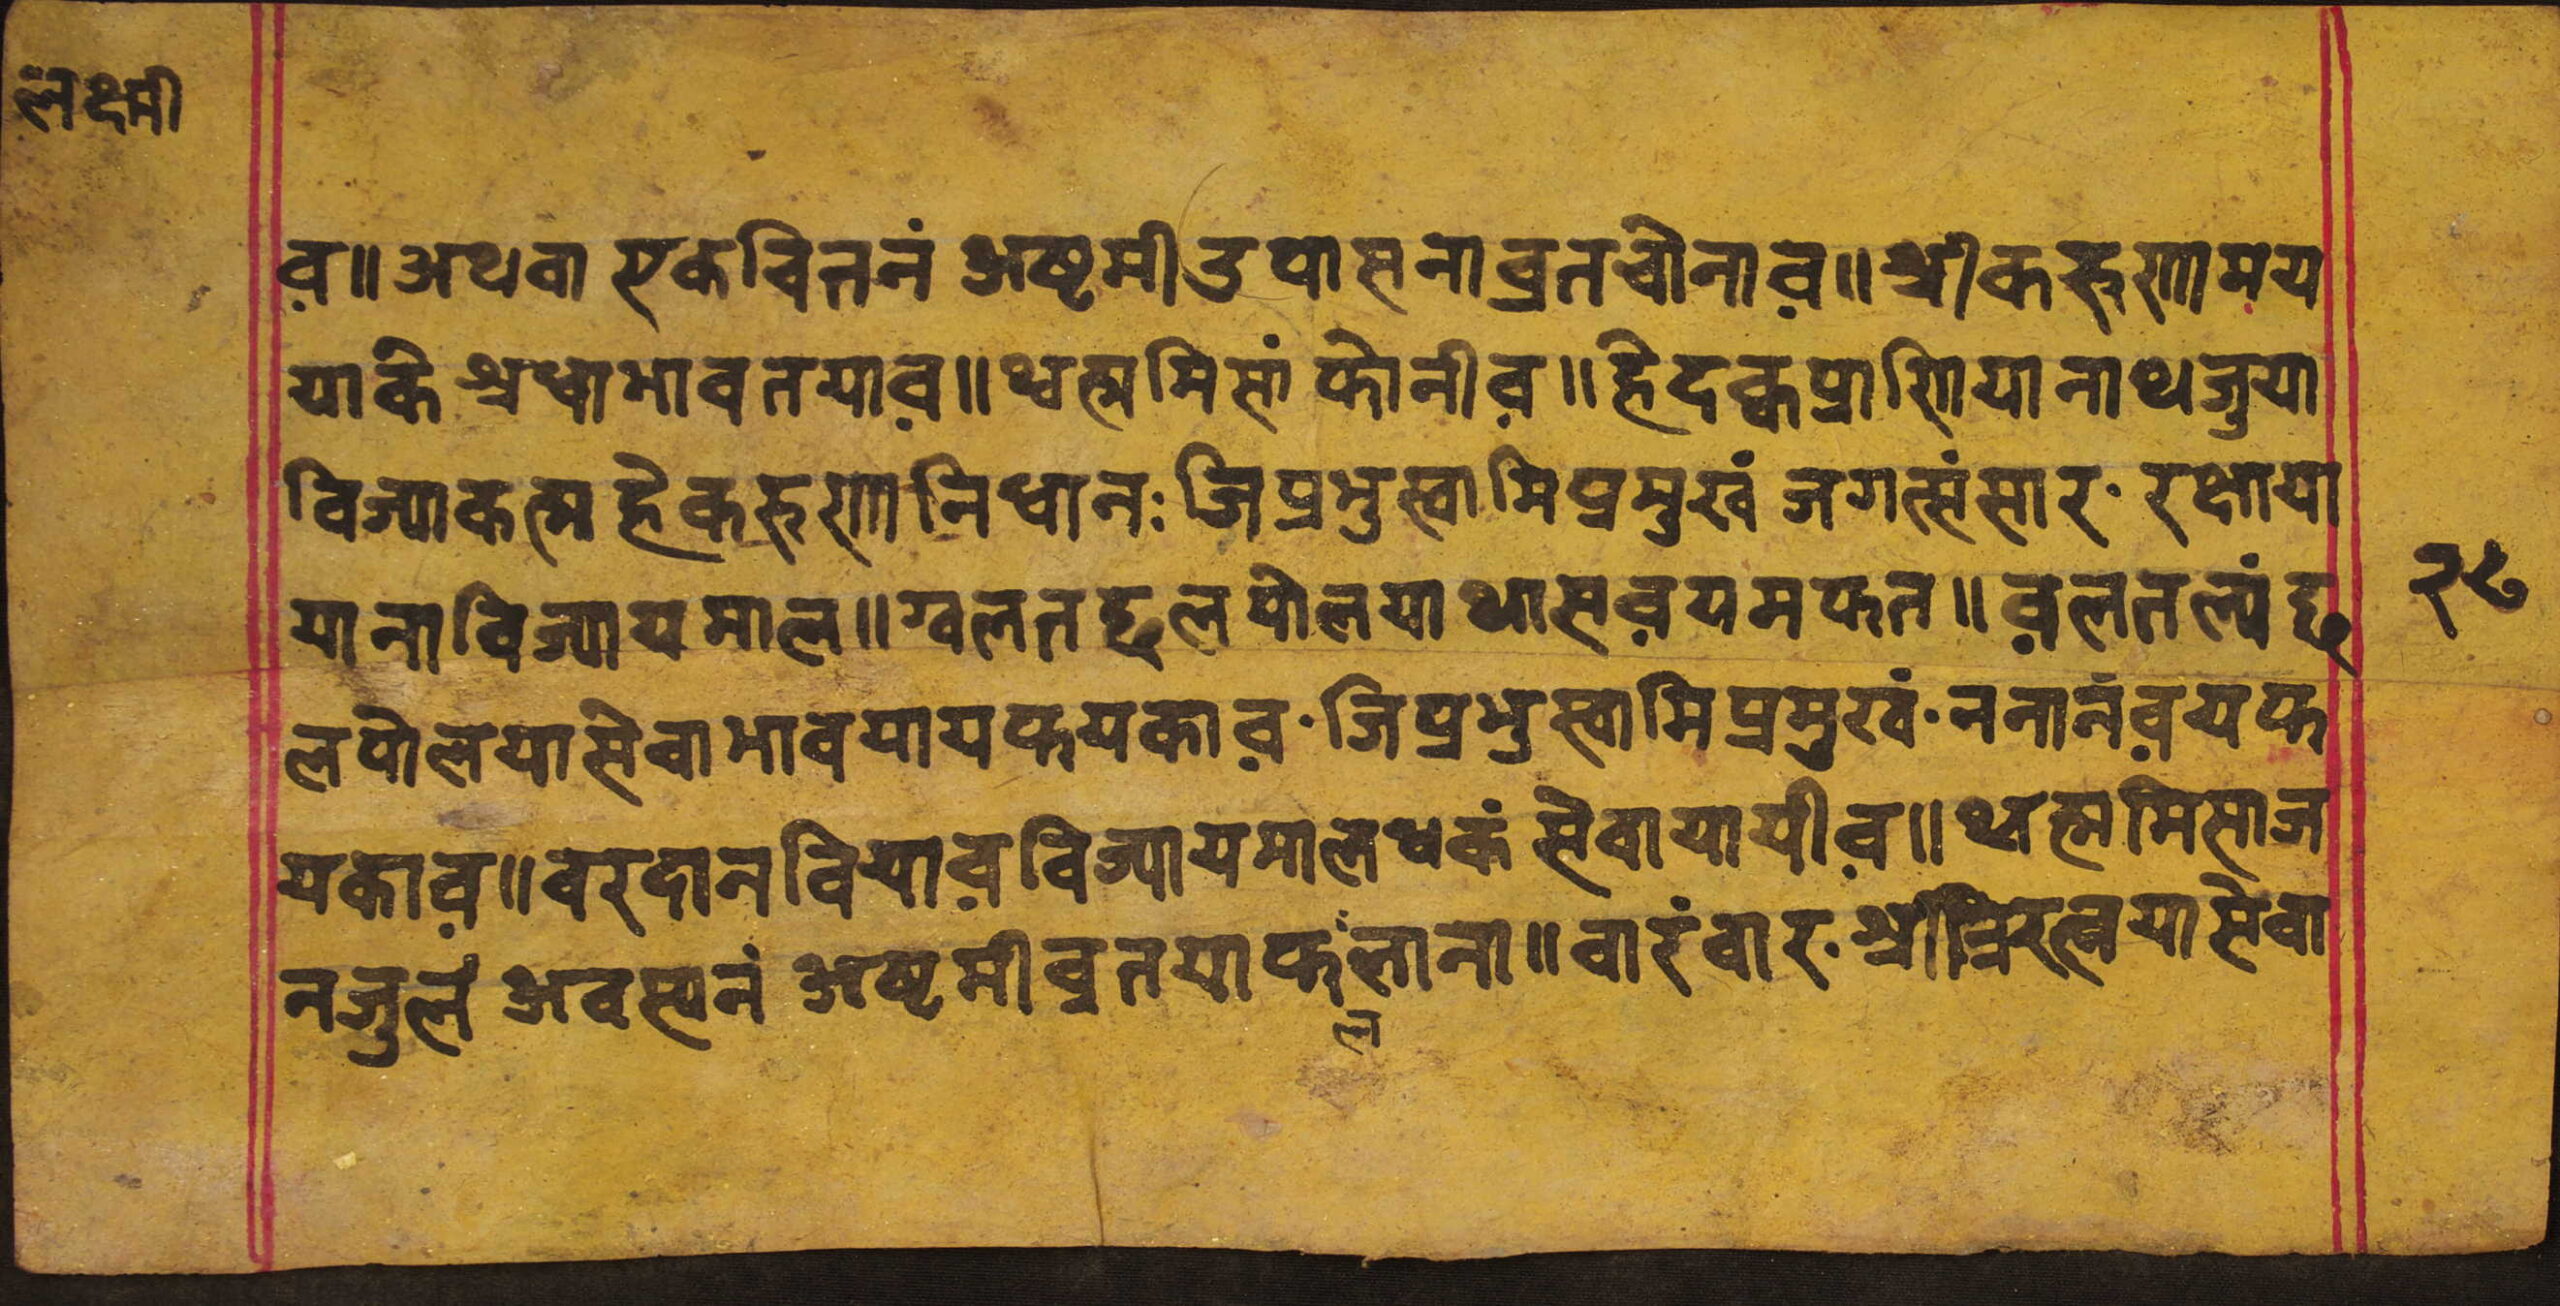 लक्ष्मी
व़॥ अथवा एकचित्तनं अष्टमीउपासनाव्रतचोनाव़॥ श्रीकरुणामय
याके श्रधाभावतयाव़॥ थ्वत्ममिसां फोनीव़॥ हेदक्वप्राणियानाथजुया
विज्याकत्म हेकरुणानिधानः जिप्रभुस्वामिप्रमुखं जगत्संसार· रक्षाया
यानाविज्यायमाल॥ ग्वलतछलपोलयाथासव़यमफत॥ व़लतल्यंछ
लपोलयासेवाभावयायफयकाव़· जिप्रभुस्वामिप्रमुखं· ननानंव़यफ
यकाव़॥ वरदानवियाव़विज्यायमालधकं सेवायायीव़॥ थ्वत्ममिसाज
नजुलं अवस्यनं अष्टमीव्रतयाफलंलाना॥ वारंवार· श्रीत्रिरत्नयासेवा
२९